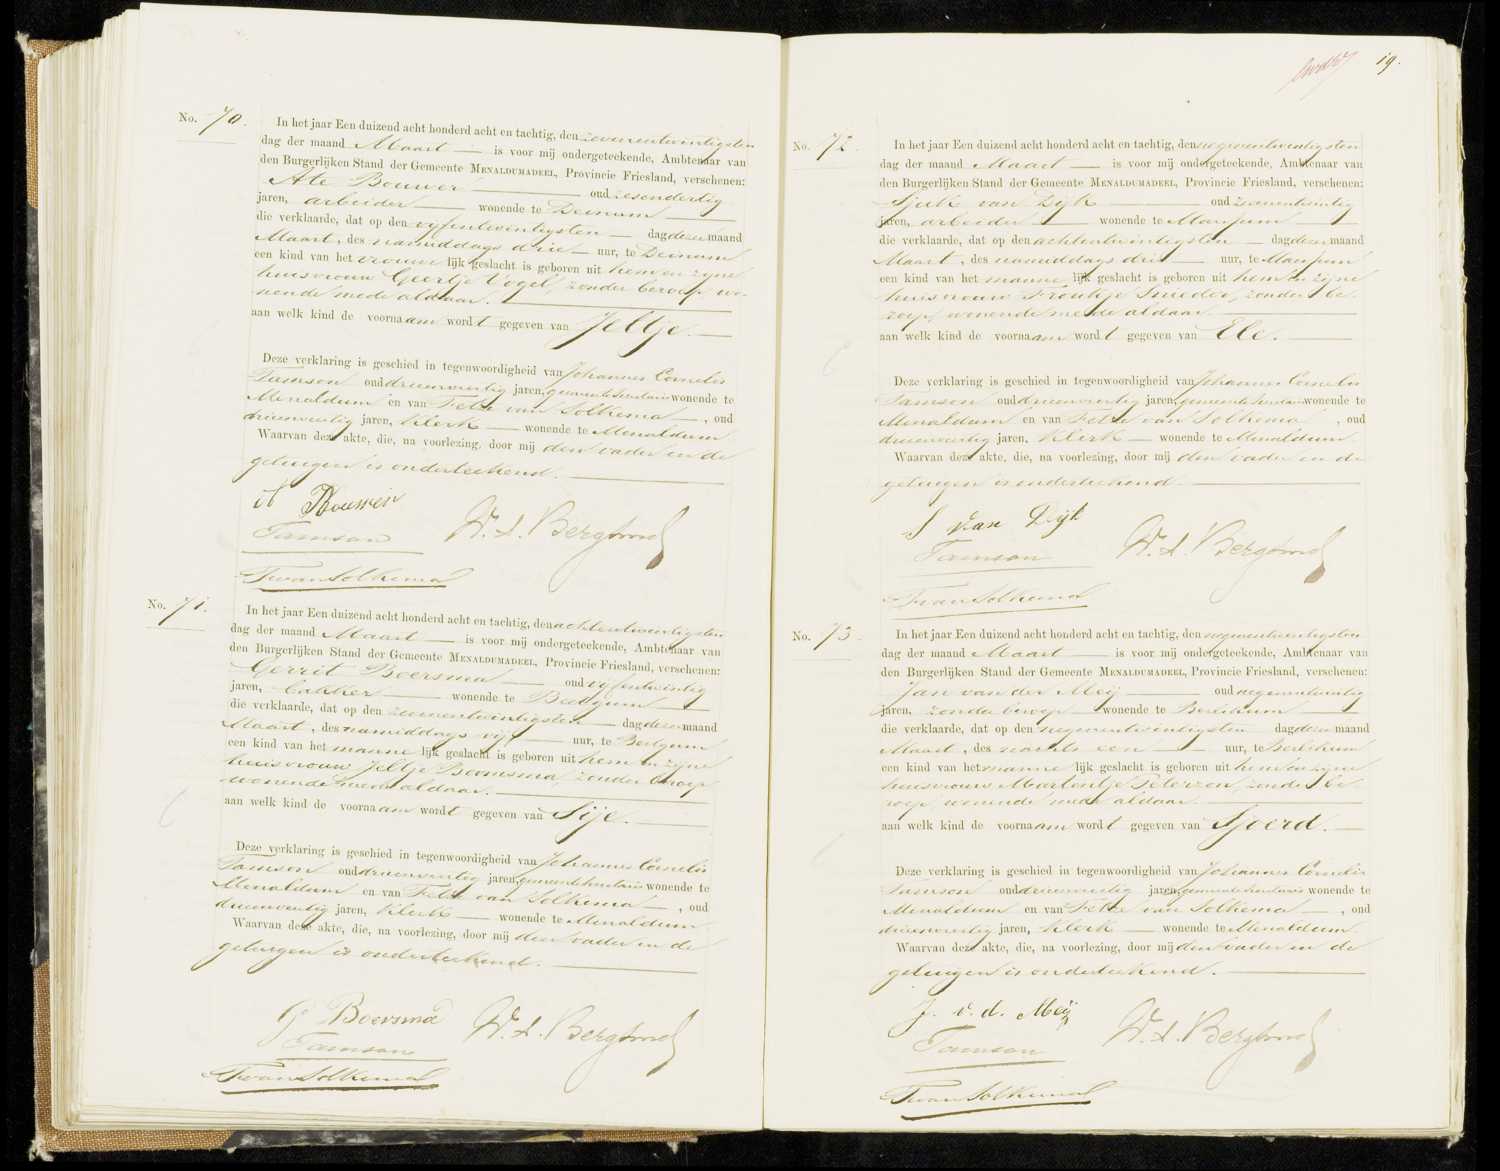 No. 70.
In het jaar Een duizend acht honderd acht en tachtig, den zevenentwintigsten
dag der maand Maart is voor mij ondergeteekende, Ambtenaar van
den Burgerlijken Stand der Gemeente MENALDUMADEEL, Provincie Friesland, verschenen:
Ate Bouwer oud zesendertig
jaren, arbeider wonende te Deinum
die verklaarde, dat op den vijfentwintigsten dag dezer maand
Maart, des namiddags drie uur, te Deinum
een kind van het vrouwelijk geslacht is geboren uit hem en zijne
huisvrouw Geertje Vogel, zonder beroep, wo-
nende mede aldaar.
aan welk kind de voornaam wordt gegeven van Jeltje.
Deze verklaring is geschied in tegenwoordigheid van Johannes Cornelis
Tamson oud drieenveertig jaren, gemeente Secretaris wonende te
Menaldum en van Fetze van Solkema, oud
drieenveertig jaren, Klerk wonende te Menaldum
Waarvan deze akte, die, na voorlezing, door mij den vader en de
getuigen is onderteekend.
A Bouwer
Tamson
W. A. Bergsma
F van Solkema
No. 71.
In het jaar Een duizend acht honderd acht en tachtig, den achtentwintigsten
dag der maand Maart is voor mij ondergeteekende, Ambtenaar van
den Burgerlijken Stand der Gemeente MENALDUMADEEL, Provincie Friesland, verschenen:
Gerrit Boersma oud vijfentwintig
jaren, bakker wonende te Beetgum
die verklaarde, dat op den zevenentwintigsten dag dezer maand
Maart, des namiddags vijf uur, te Beetgum
een kind van het mannelijk geslacht is geboren uit hem en zijne
huisvrouw Jeltje Boomsma, zonder beroep
wonende mede aldaar.
aan welk kind de voornaam wordt gegeven van Sije.
Deze verklaring is geschied in tegenwoordigheid van Johannes Cornelis
Tamson oud drieenveertig jaren, gemeente Secretaris wonende te
Menaldum en van Fetze van Solkema, oud
drieenveertig jaren, Klerk wonende te Menaldum
Waarvan deze akte, die, na voorlezing, door mij den vader en de
getuigen is onderteekend.
G Boersma
Tamson
W. A. Bergsma
F van Solkema
19.
No. 72.
In het jaar Een duizend acht honderd acht en tachtig, den negenentwintigsten
dag der maand Maart is voor mij ondergeteekende, Ambtenaar van
den Burgerlijken Stand der Gemeente MENALDUMADEEL, Provincie Friesland, verschenen:
Sjuk van Dijk oud zevenentwintig
jaren, arbeider wonende te Marssum
die verklaarde, dat op den achtentwintigsten dag dezer maand
Maart, des namiddags drie uur, te Marssum
een kind van het mannelijk geslacht is geboren uit hem en zijne
huisvrouw Froukje Smeder, zonder be-
roep, wonende mede aldaar.
aan welk kind de voornaam wordt gegeven van Ele.
Deze verklaring is geschied in tegenwoordigheid van Johannes Cornelis
Tamson oud drieenveertig jaren, gemeente Secretaris wonende te
Menaldum en van Fetze van Solkema, oud
drieenveertig jaren, Klerk wonende te Menaldum
Waarvan deze akte, die, na voorlezing, door mij den vader en de
getuigen is onderteekend.
S van Dijk
Tamson
W. A. Bergsma
F van Solkema
No. 73.
In het jaar Een duizend acht honderd acht en tachtig, den negenentwintigsten
dag der maand Maart is voor mij ondergeteekende, Ambtenaar van
den Burgerlijken Stand der Gemeente MENALDUMADEEL, Provincie Friesland, verschenen:
Jan van der Meij oud negenentwintig
jaren, zonder beroep wonende te Berlikum
die verklaarde, dat op den negenentwintigsten dag dezer maand
Maart, des nachts een uur, te Berlikum
een kind van het mannelijk geslacht is geboren uit hem en zijne
huisvrouw Martentje Peterzon, zonder be-
roep, wonende mede aldaar.
aan welk kind de voornaam wordt gegeven van Sjoerd.
Deze verklaring is geschied in tegenwoordigheid van Johannes Cornelis
Tamson oud drieenveertig jaren, gemeente Secretaris wonende te
Menaldum en van Fetze van Solkema, oud
drieenveertig jaren, Klerk wonende te Menaldum.
Waarvan deze akte, die, na voorlezing, door mij den vader en de
getuigen is onderteekend.
J. v. d. Meij
Tamson
W. A. Bergsma
F van Solkema